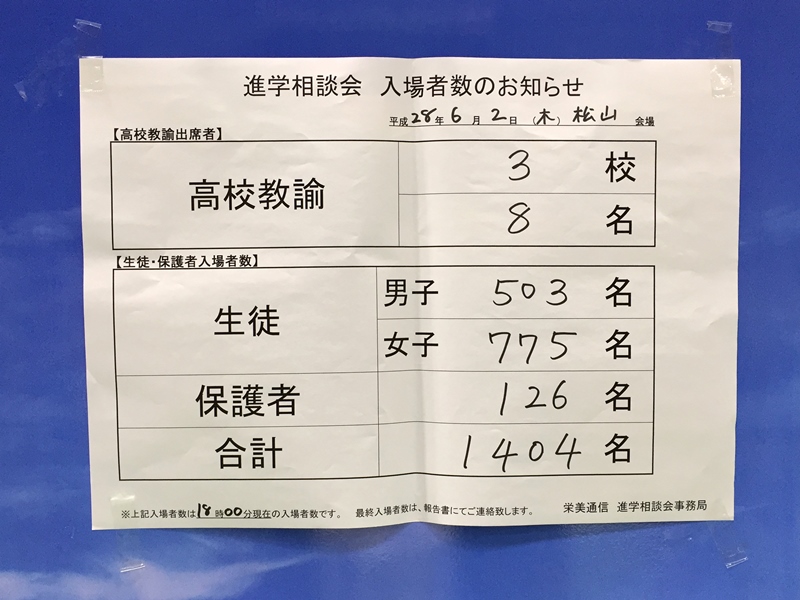 進学相談会 入場者数のお知らせ
平成28年6月2日(木)松山 会場
【高校教諭出席者】
高校教諭 3 校
8 名
【生徒・保護者入場者数】
生徒 男子 503 名
女子 775 名
保護者 126 名
合計 1404 名
※上記入場者数は18時00分現在の入場者数です。 最終入場者数は、報告書にてご連絡致します。 栄美通信 進学相談会事務局